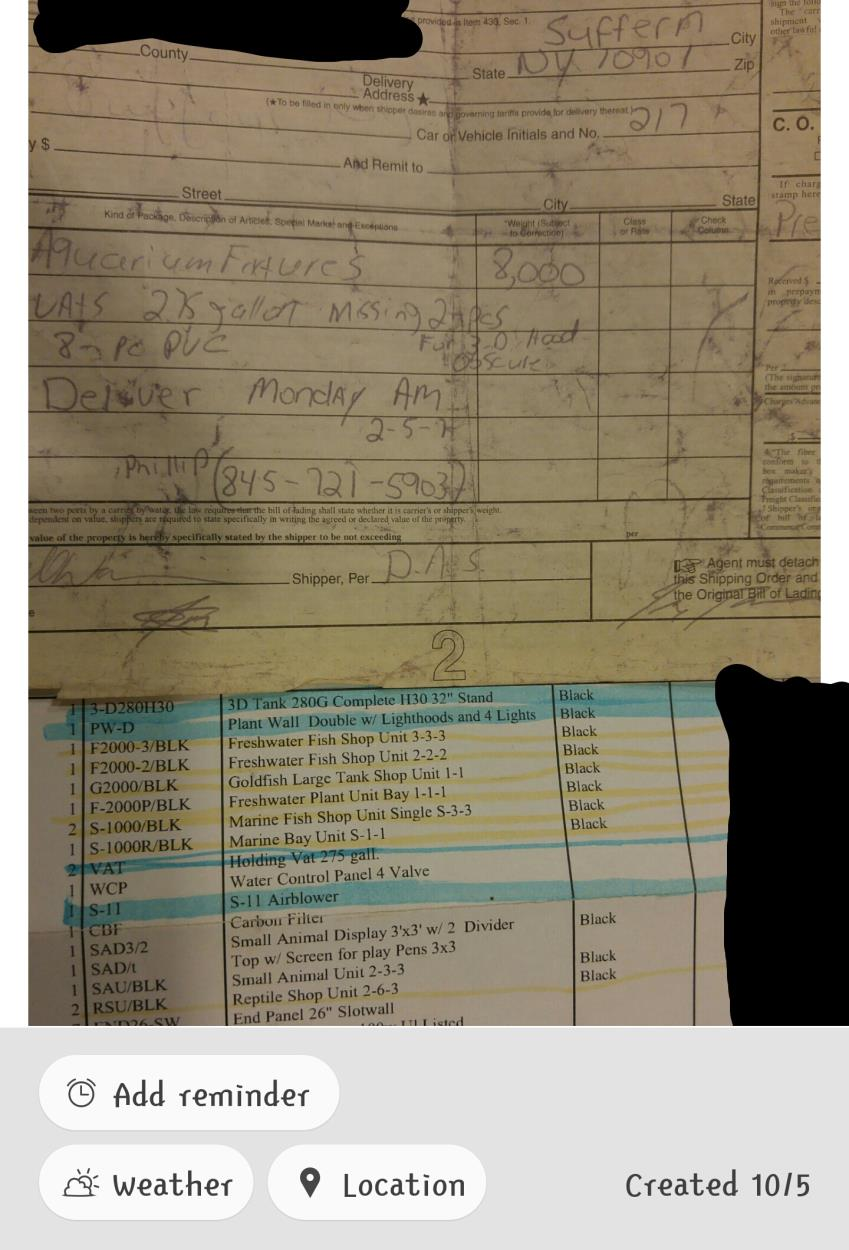 provided is Item 430, Sec. 1.
Suffern City
County State NY 10901 Zip
Delivery
Address ★
(★To be filled in only when shipper desires and governing tariffs provide for delivery thereat.)
Car or Vehicle Initials and No. 217
C. O.
y $ And Remit to
Street City State
If charg
stamp here
Kind of Package, Description of Articles, Special Marks and Exceptions *Weight (Subject to Correction) Class or Rate Check Column
Pre
Aquarium Fixtures 8,000
VATS 275 gallon Missing pcs
PC PVC For 3-D Hood
Deliver Monday AM
2-5-
Phillip (845-721-5903)
Received $
in prepaym
property desc
Per
(The signatur
the amount pr
Charges Advanc
$
ween two ports by a carrier by water, the law requires that the bill of lading shall state whether it is carrier's or shipper's weight.
dependent on value, shippers are required to state specifically in writing the agreed or declared value of the property.
value of the property is hereby specifically stated by the shipper to be not exceeding per
Shipper, Per D.A.S.
Agent must detach
this Shipping Order and
the Original Bill of Lading
2
1 3-D280H30 3D Tank 280G Complete H30 32" Stand Black
1 PW-D Plant Wall Double w/ Lighthoods and 4 Lights Black
1 F2000-3/BLK Freshwater Fish Shop Unit 3-3-3 Black
1 F2000-2/BLK Freshwater Fish Shop Unit 2-2-2 Black
1 G2000/BLK Goldfish Large Tank Shop Unit 1-1 Black
1 F-2000P/BLK Freshwater Plant Unit Bay 1-1-1 Black
2 S-1000/BLK Marine Fish Shop Unit Single S-3-3 Black
1 S-1000R/BLK Marine Bay Unit S-1-1 Black
2 VAT Holding Vat 275 gall.
1 WCP Water Control Panel 4 Valve
1 S-11 S-11 Airblower
1 CBF Carbon Filter
1 SAD3/2 Small Animal Display 3'x3' w/ 2 Divider Black
1 SAD/t Top w/ Screen for play Pens 3x3
1 SAU/BLK Small Animal Unit 2-3-3 Black
2 RSU/BLK Reptile Shop Unit 2-6-3 Black
END26-SW End Panel 26" Slotwall
Ul Listed
Add reminder
Weather
Location
Created 10/5